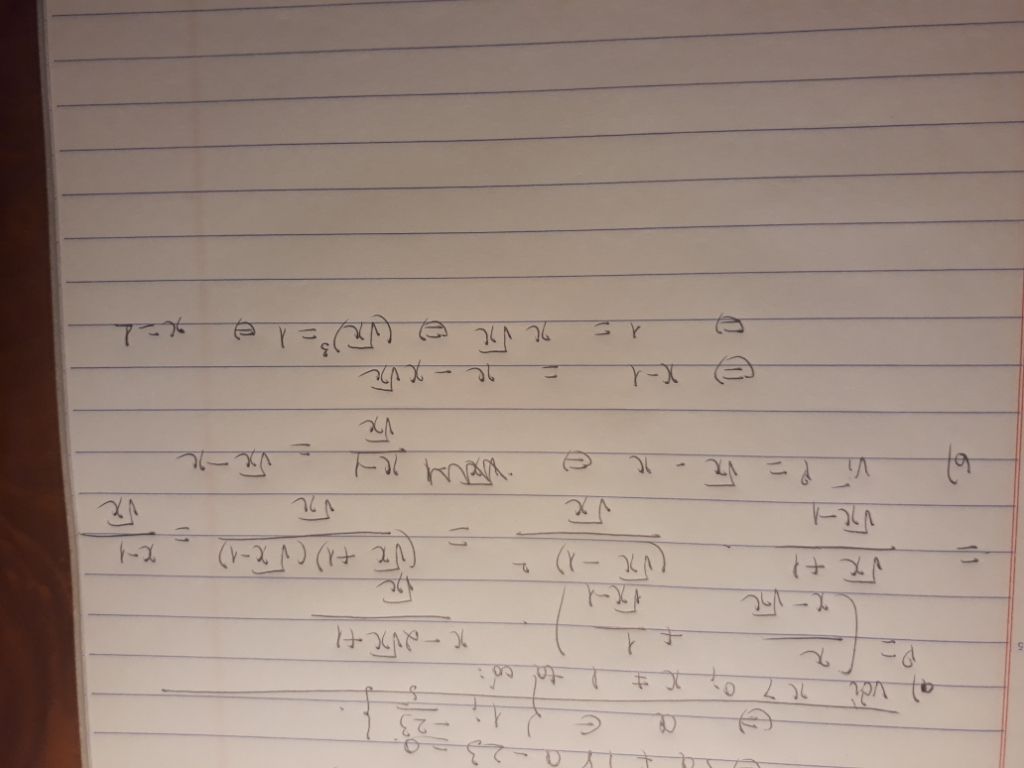 a - 23 = 0
⇔ a ∈ {1; -23/5}.
a) Với x > 0; x ≠ 1 ta có:
P = (x/(x-√x) + 1/(√x-1)) · (x-2√x+1)/√x
= (√x+1)/(√x-1) · (√x-1)²/√x = (√x+1)(√x-1)/√x = (x-1)/√x
b) Vì P = √x - x ⇔ (x-1)/√x = √x - x
⇔ x-1 = x - x√x
⇔ 1 = x√x ⇔ (√x)³ = 1 ⇔ x = 1